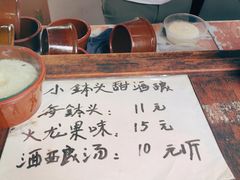 小钵头甜酒酿
每钵头：11元
火龙果味：15元
酒酿汤：10元/斤